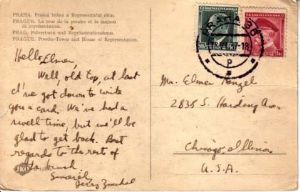 PRAHA. Prašná brána a Representační dům.
PRAGUE. La tour de la poudre et la maison de représentation.
PRAG. Pulverturm und Repräsentationshaus.
PRAGUE. Powder-Tower and House of Representation.
Hello Elmer,
Well, old top, at last
I've got down to write
you a card. We've had a
swell time, but we'll be
glad to get back. Best
regards to the rest of
the bunch.
Sincerely,
Mr. Elmer
2835 S. Harding Ave
Chicago Illinois
U.S.A.